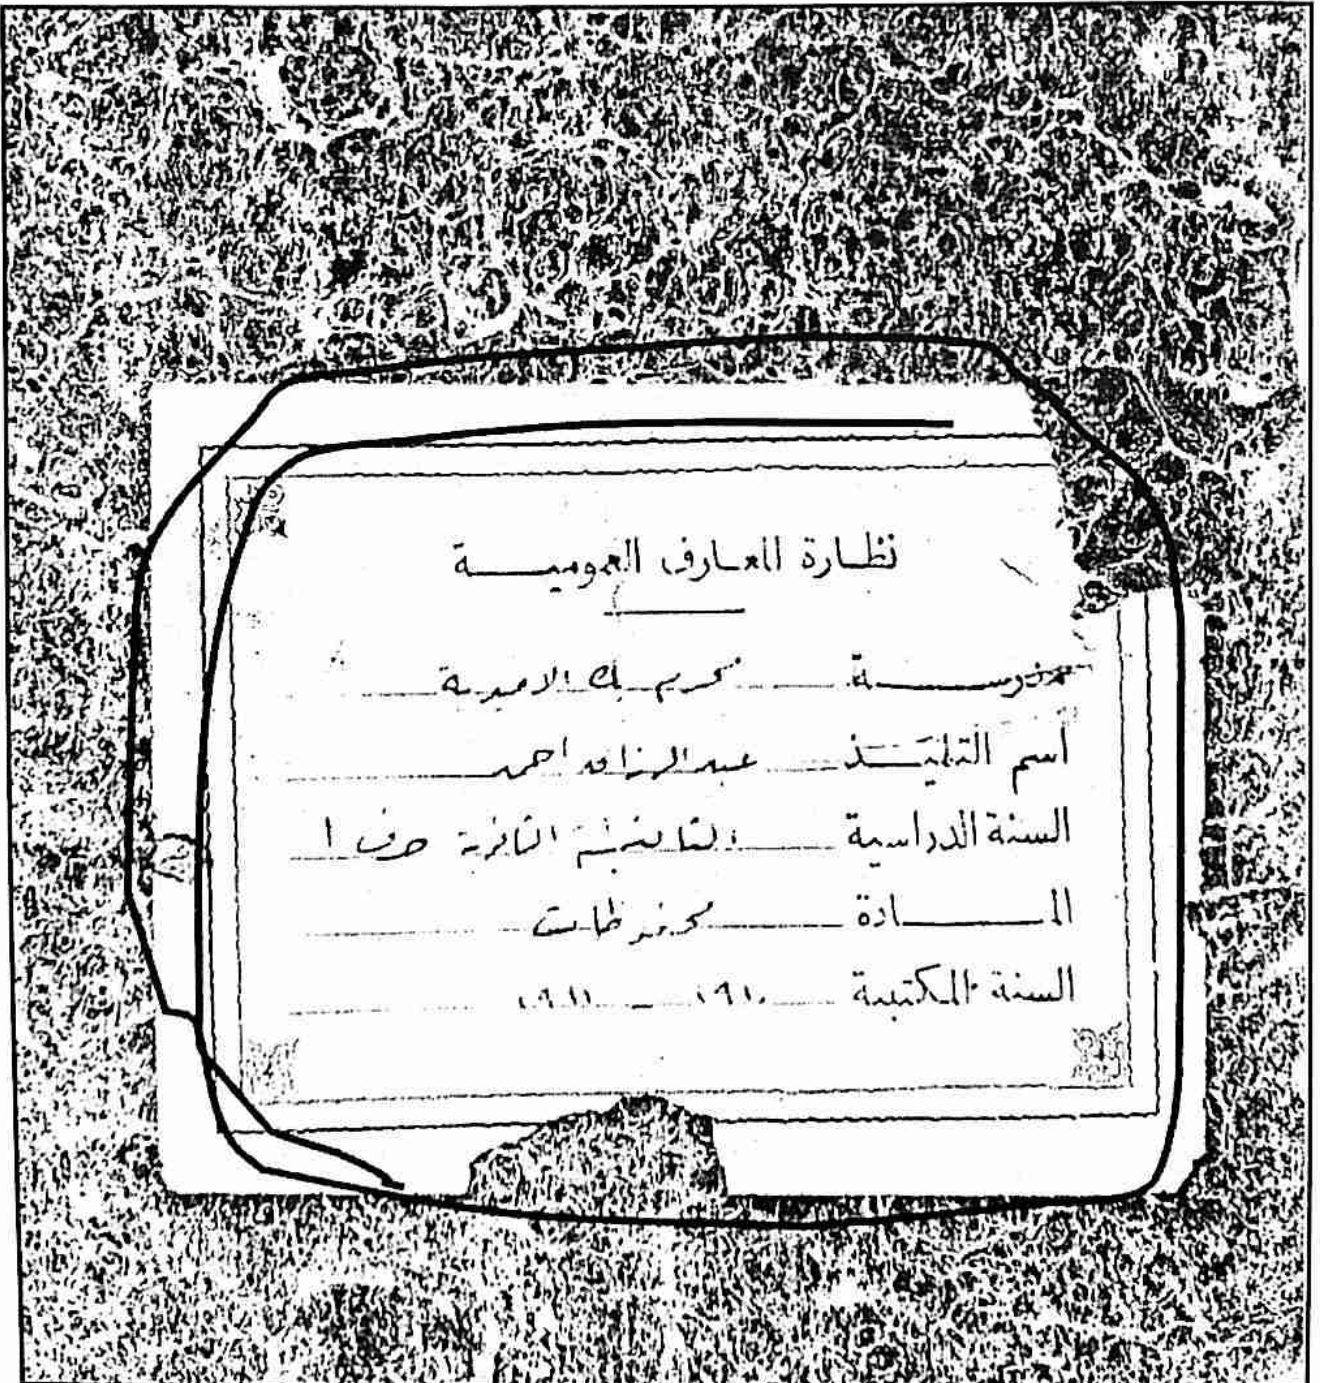 نظارة المعارف العمومية
مدرسة محرم بك الاميرية
اسم التلميذ عبد الرزاق احمد
السنة الدراسية الثانوية حرف ا
المادة
السنة المكتبية ١٩١٠ - ١٩١١